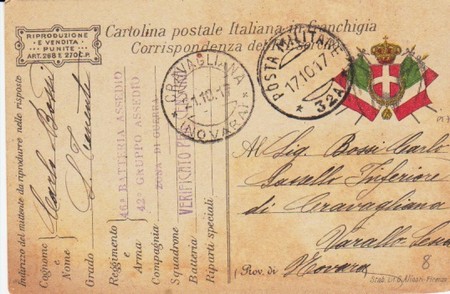 RIPRODUZIONE
E VENDITA
PUNITE
ART. 268 E 270 C.P.
Cartolina postale Italiana in Franchigia
Corrispondenza del
CRAVAGLIANA
1.10.17
(NOVARA)
POSTA MILITARE
17.10.17
32A
VERIFICATO PER
ZONA DI GUERRA
42° GRUPPO ASSEDIO
BATTERIA ASSEDIO
Indirizzo del mittente da riprodurre nelle risposte
Cognome e Nome Carlo Bossi
Grado S. Tenente
Reggimento
Compagnia
Squadrone
Batteria
Riparti speciali
Al Sig. Bossi Carlo
Casello Inferiore
di Cravagliana
Varallo Sesia
Prov. di Novara
8